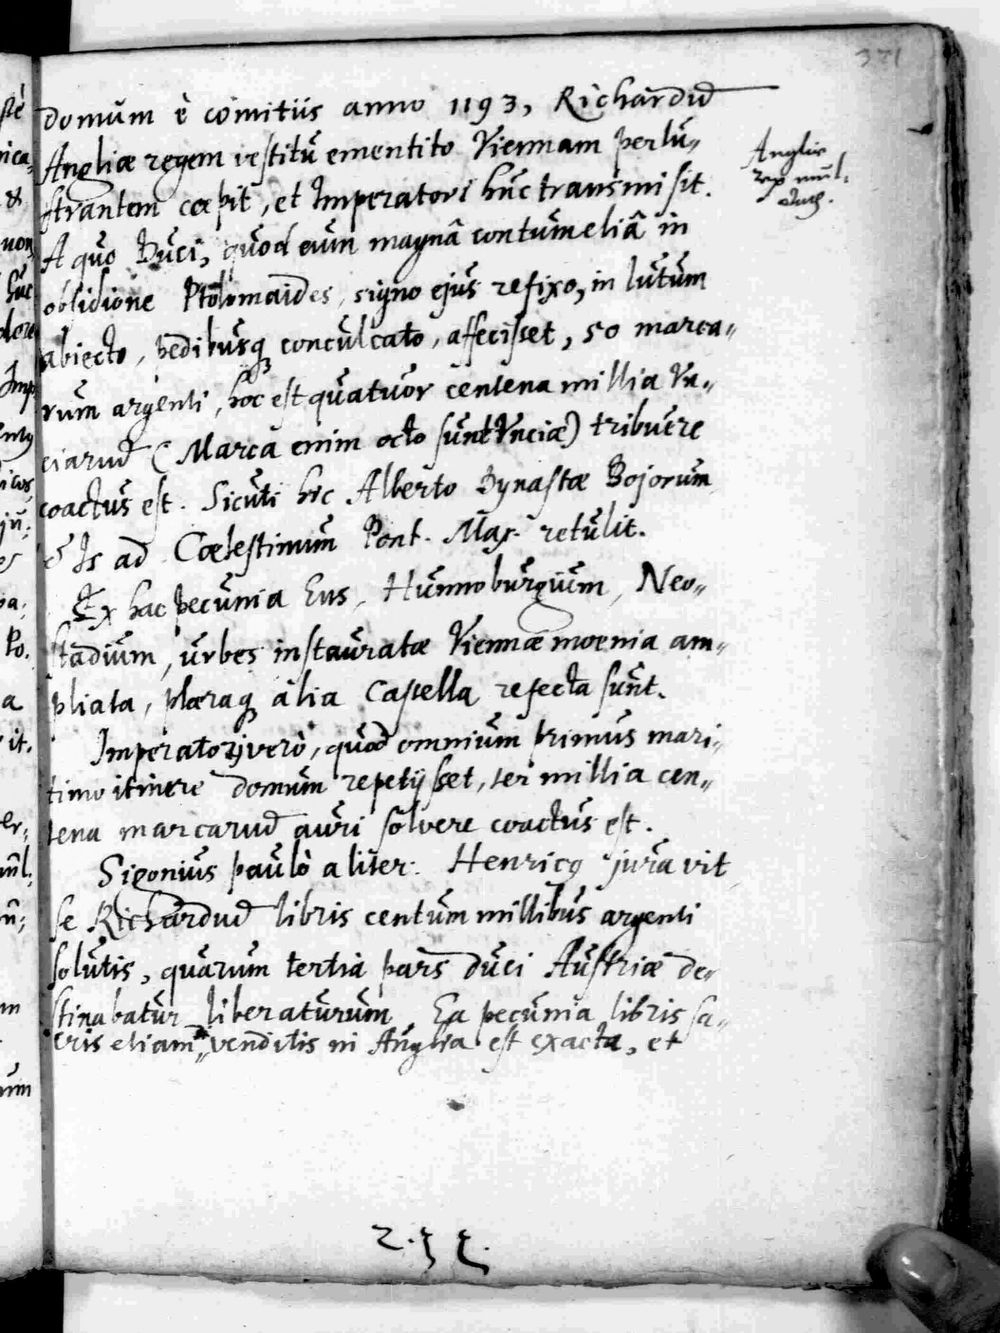 371
domum è comitiis anno 1193, Richardũ
Angliæ regem vestitu ementito Viennam perlu-
strantem cœpit, et Imperatori hũc transmisit.
A quo Duci, quod eum magnâ contumeliâ in
obsidione Ptolomaides, signo ejus refixo, in lutum
abiecto, pedibusq conculcato, affecisset, 50 marca-
rum argenti, hoc est quatuor centena millia Vn-
ciarũ (Marca enim octo sunt Vnciæ) tribuere
coactus est. Sicuti hic Alberto Dynastæ Bojorum
& Is ad Cœlestinum Pont. Max. retulit.
Ex hac pecunia Ens, Hunnoburgium, Neo-
stadium, urbes instauratæ Viennæ moenia am-
pliata, pleraq alia Castella refecta sunt.
Imperatori verò, quod omnium primus mari-
timo itinere domum repetijsset, ter millia cen-
tena marcarũ auri solvere coactus est.
Sigonius paulò aliter. Henricq juravit
se Richardũ libris centum millibus argenti
solutis, quarum tertia pars duci Austriæ de-
stinabatur liberaturum. Ea pecunia libris sa-
cris etiam venditis in Anglia est exacta, et
Angliæ
rex